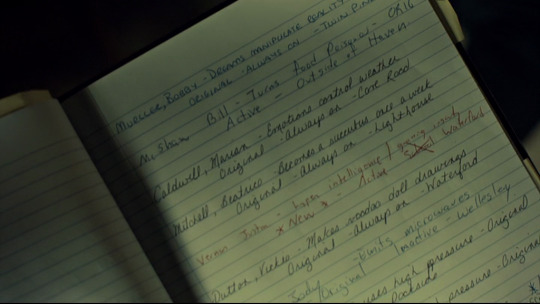 MUELLER, BOBBY - DREAMS MANIPULATE REALITY
ORIGINAL - ALWAYS ON - TWIN PINE
McShaw Bill - Turns Food Poisonous -
Active - Outside of Haven
Caldwell, Marian - Emotions control weather
Original - Always on - Cove Road
Mitchell, Beatrice - Becomes a succubus once a week
Original - Always on - Lighthouse
Vernon, Justin - harm intelligence /
* New * - Active Waterford
Dutton, Vickie - Makes voodoo doll drawings
Original - Always on - Waterford
Judy - Emits microwaves
Original Inactive - Wellesley
high pressure - Original
Dockside
pressure - Origin